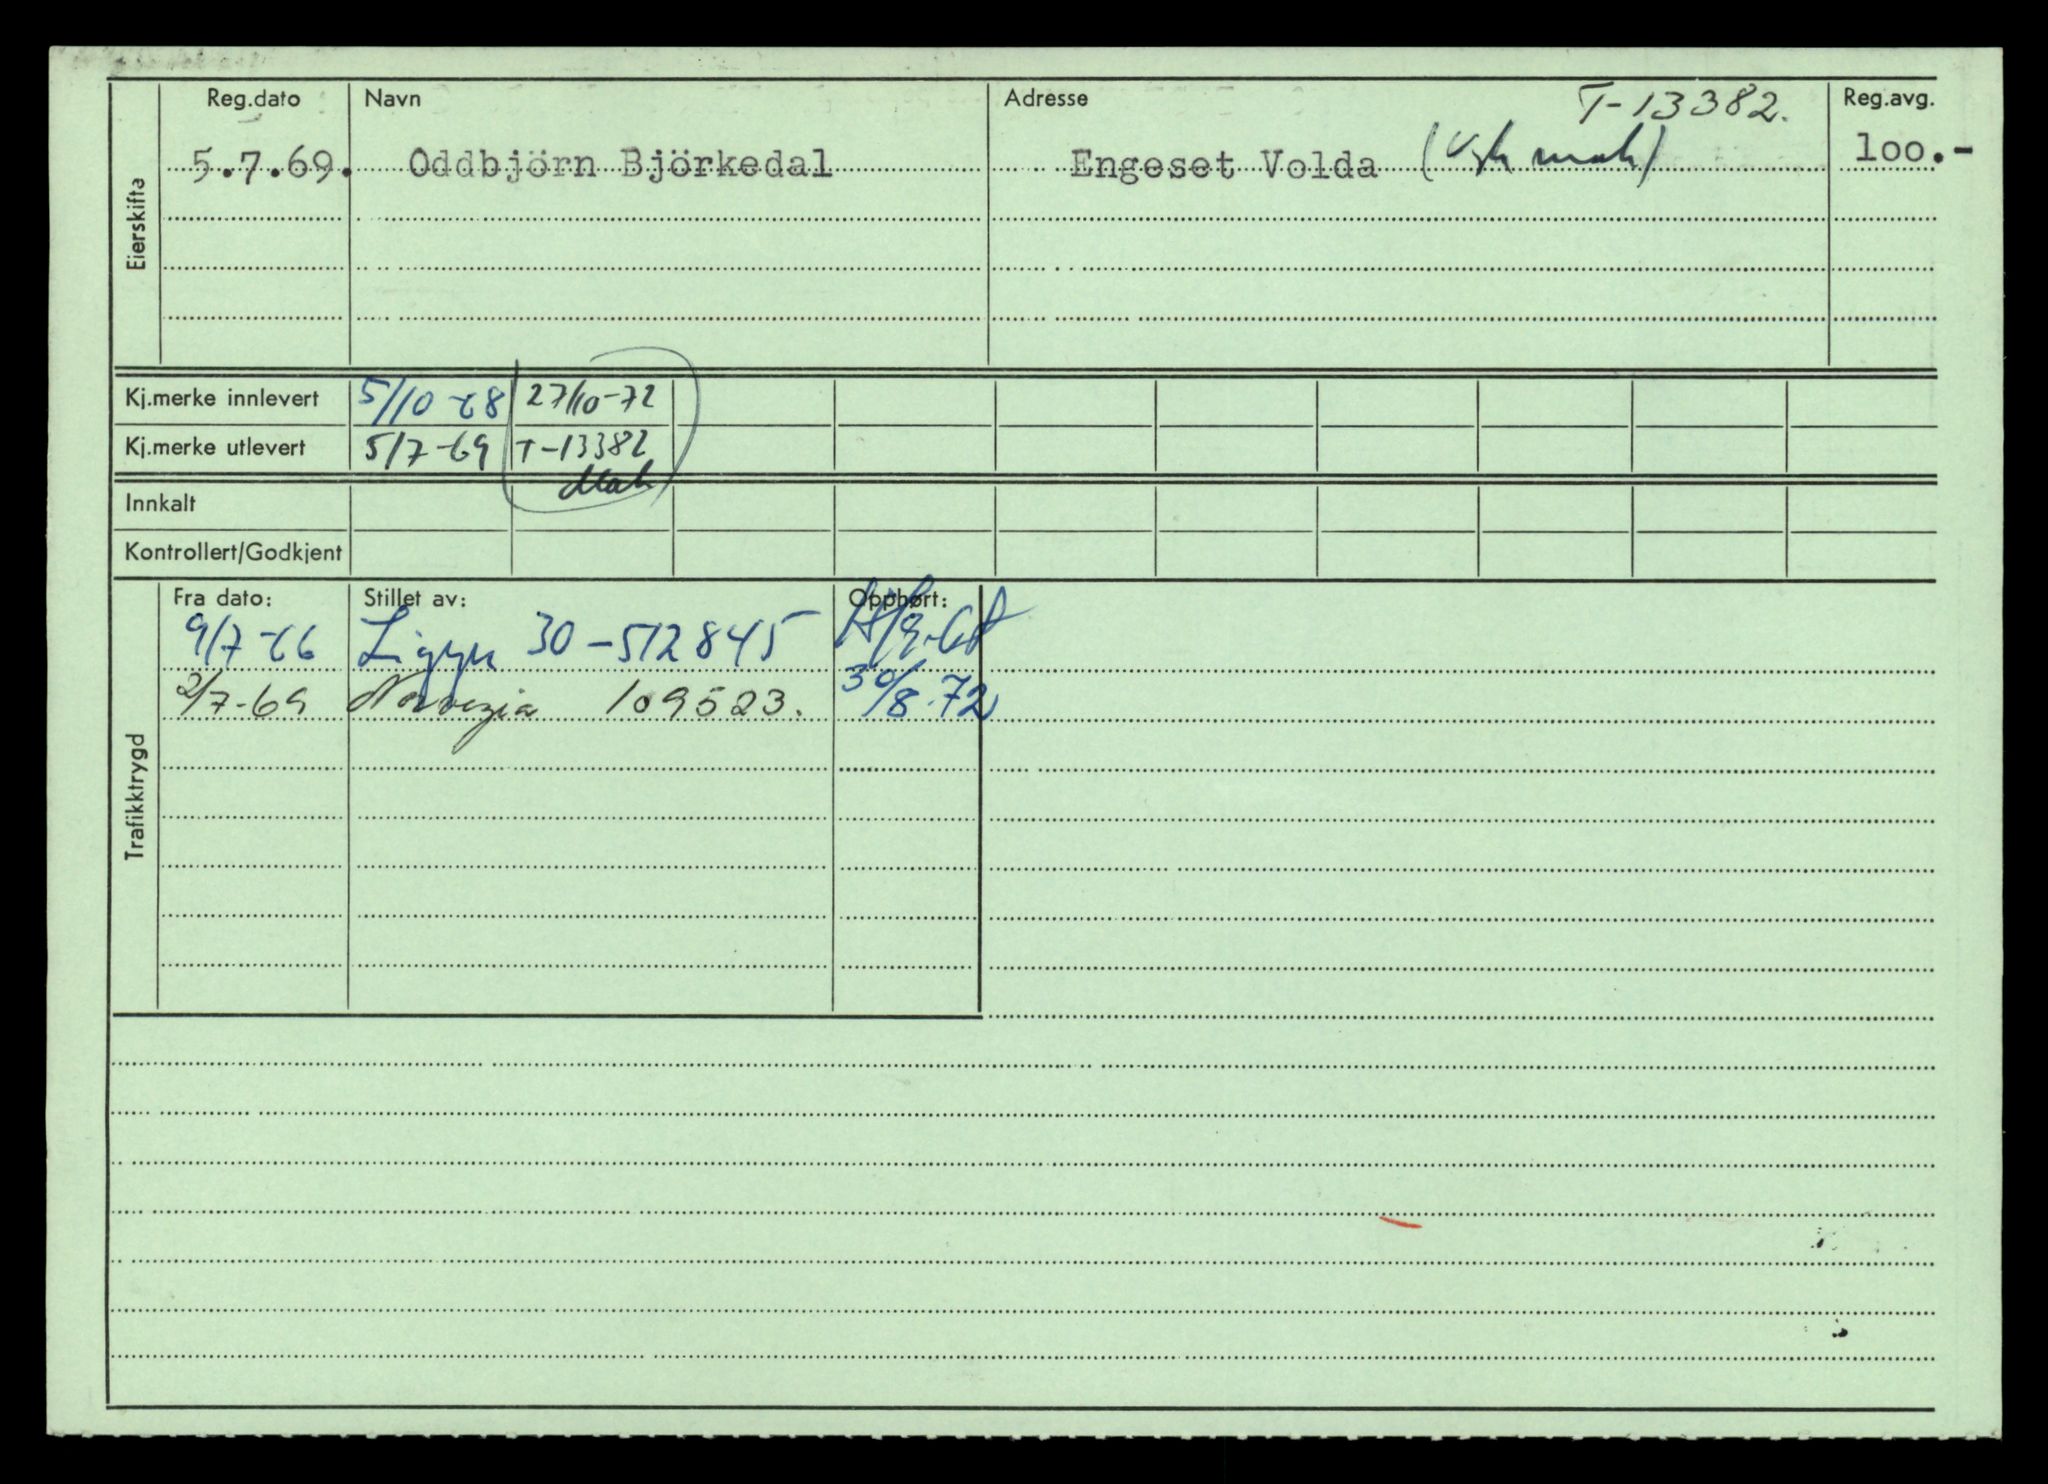 Eierskifte
Reg.dato Navn Adresse T-13382. Reg.avg.
5.7.69. Oddbjörn Björkedal Engeset Volda 100.-
Kj.merke innlevert 5/10-68 27/10-72
Kj.merke utlevert 5/7-69 T-13382
Innkalt
Kontrollert/Godkjent
Trafikktrygd
Fra dato: Stillet av: Opphørt:
9/7-66 30-512845
2/7-69 Norvegia 109523. 30/8.72